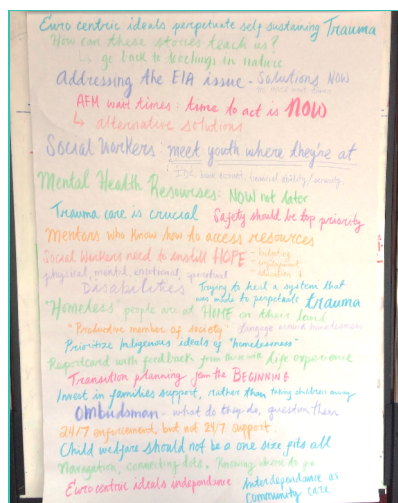 Euro centric ideals perpetuate self sustaining Trauma
How can these stories teach us?
↳ go back to teachings in nature
Addressing the EIA issue - Solutions NOW
no more wait times
AFM wait times: time to act is NOW
↳ alternative solutions
Social Workers: meet youth where they're at
: IDs, bank account, financial ability/security.
Mental Health Resources: NOW not later
Trauma care is crucial Safety should be top priority
Mentors who know how to access resources
Social Workers need to instill HOPE - budgeting
- employment
- education
physical, mental, emotional, spiritual
Disabilities Trying to heal a system that
was made to perpetuate trauma
"Homeless" people are at HOME on their land
"Productive member of society" Language around homelessness
Prioritize Indigenous ideals of "homelessness"
Reportcard with feedback from those with life experience
Transition planning from the BEGINNING
Invest in families support, rather than taking children away
Ombudsman - what do they do, question them
24/7 enforcement, but not 24/7 support.
Child welfare should not be a one size fits all
Navigation, connecting dots. Knowing where to go
Euro centric ideals independence Interdependance as
community care